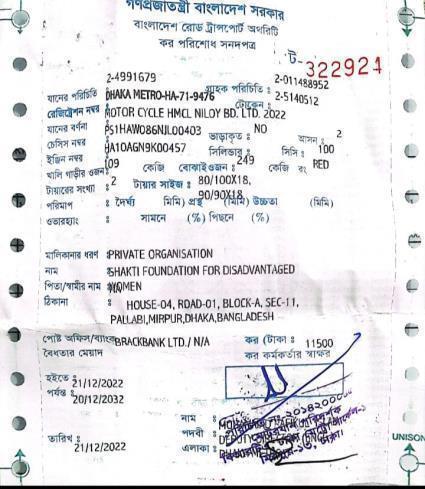 গণপ্রজাতন্ত্রী বাংলাদেশ সরকার
বাংলাদেশ রোড ট্রান্সপোর্ট অথরিটি
কর পরিশোধ সনদপত্র
ট- 322924
2-4991679 2-011488952
যানের পরিচিতি : DHAKA METRO-HA-71-9476 গ্রাহক পরিচিতি : 2-5140512
রেজিস্ট্রেশন নম্বর : MOTOR CYCLE HMCL NILOY BD. LTD. 2022 টোকেন :
যানের বর্ণনা
চেসিস নম্বর : PS1HAW086NJL00403 ভাড়াকৃত : NO আসন : 2
ইঞ্জিন নম্বর : HA10AGN9K00457 সিলিন্ডার : সিসি : 100
খালি গাড়ীর ওজন : 109 কেজি বোঝাইওজন : 249 কেজি রং RED
টায়ারের সংখ্যা : 2 টায়ার সাইজ : 80/100X18,
90/90X18
পরিমাপ : দৈর্ঘ্য মিমি) প্রস্থ (মিমি) উচ্চতা (মিমি)
ওভারহ্যাং : সামনে (%) পিছনে (%)
মালিকানার ধরণ : PRIVATE ORGANISATION
নাম : SHAKTI FOUNDATION FOR DISADVANTAGED
পিতা/স্বামীর নাম : WOMEN
ঠিকানা : HOUSE-04, ROAD-01, BLOCK-A, SEC-11,
PALLABI,MIRPUR,DHAKA,BANGLADESH
পোষ্ট অফিস/ব্যাংক BRACKBANK LTD./ N/A কর (টাকা : 11500
বৈধতার মেয়াদ কর কর্মকর্তার স্বাক্ষর
হইতে : 21/12/2022
পর্যন্ত : 20/12/2032
নাম :
পদবী :
তারিখ : 21/12/2022 এলাকা :
UNISON